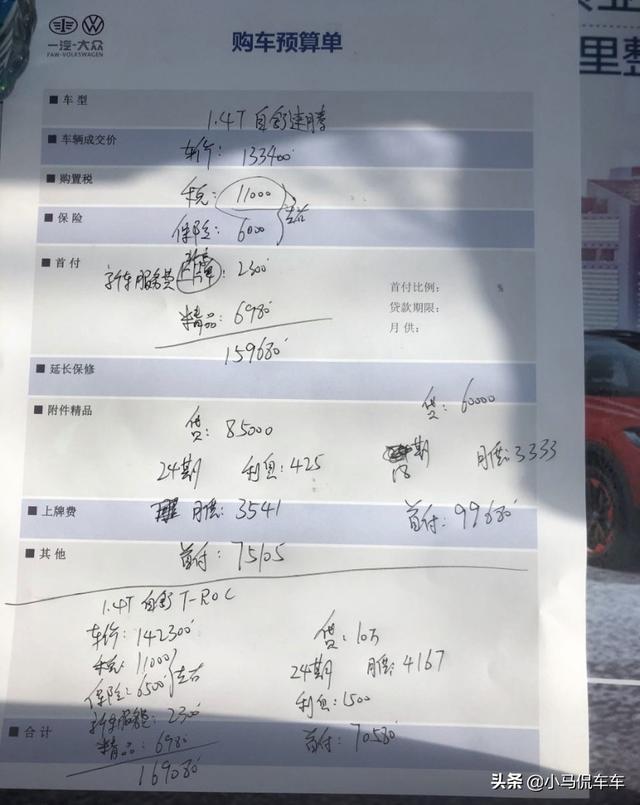 一汽-大众
FAW-VOLKSWAGEN
购车预算单
里整
■ 车型
1.4T 自动速腾
■ 车辆成交价
车价: 133400
■ 购置税
税: 11000
■ 保险
保险: 6000
■ 首付
新车服务费 2300
首付比例: %
贷款期限:
月供:
精品: 6980
159680
■ 延长保修
■ 附件精品
贷: 85000
贷: 60000
24期 利息: 425
18期 月还: 3333
■ 上牌费
月还: 3541
首付: 99680
■ 其他
首付: 75105
1.4T 自动 T-ROC
车价: 142300
贷: 10万
税: 11000
24期 月还: 4167
保险: 6500
利息: 1500
新车服务费: 2300
首付: 70580
■ 合计
精品: 6980
169080
头条 @小马侃车车